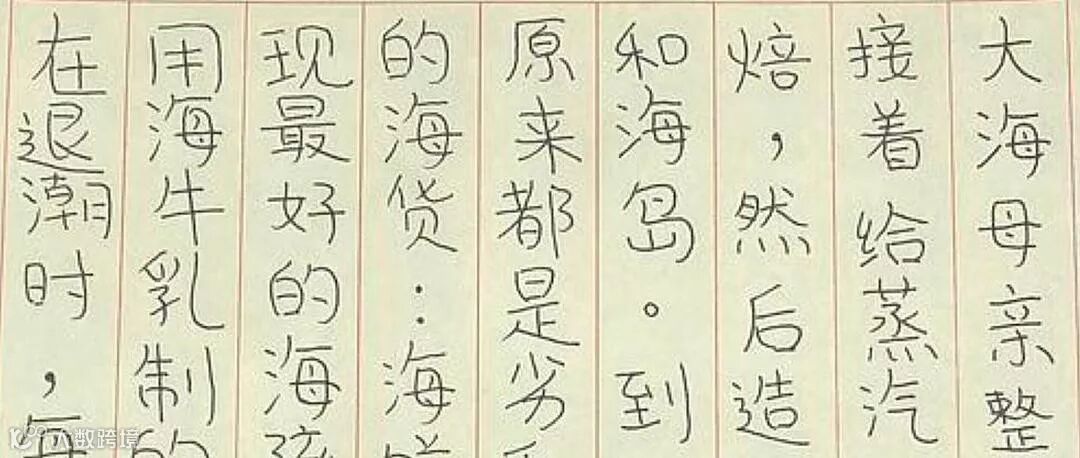 大海母亲整
接着给蒸汽
焙，然后造
和海岛。到
原来都是劣
的海货…海
现最好的海
用海牛乳制的
在退潮时，每
大数跨境